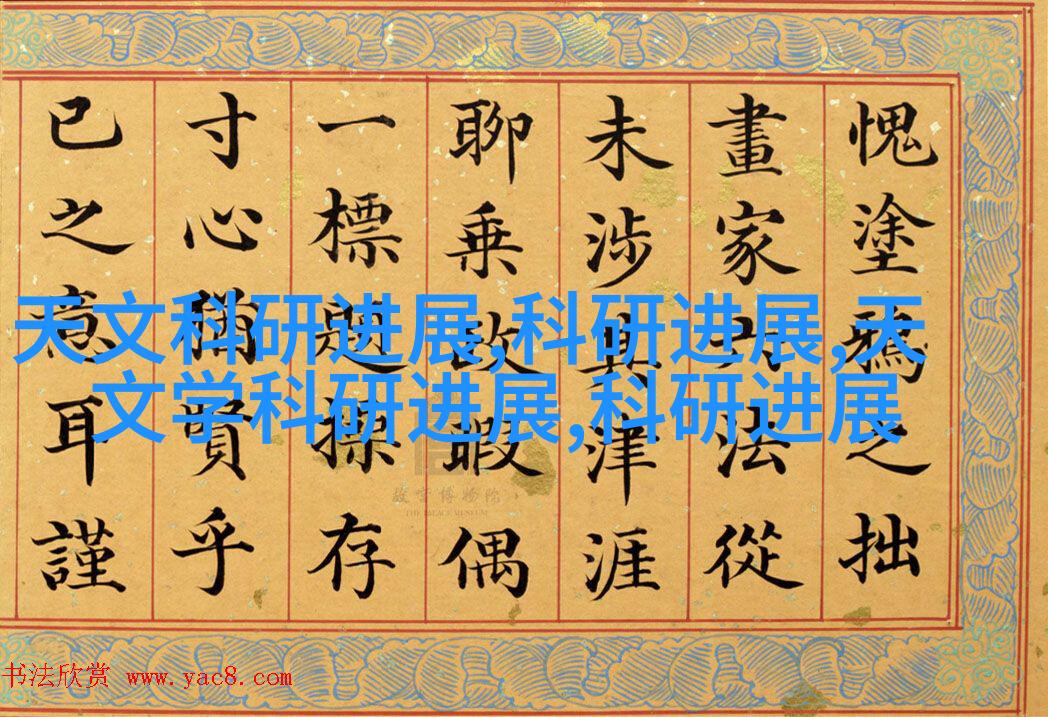 愧塗鴉之拙
畫家法從
未涉其津涯
聊乘政暇偶
一標題操存
寸心猶賢乎
已之意耳謹
天文科研进展,科研进展,天
文学科研进展,科研进展
故宫博物院
THE PALACE MUSEUM
书法欣赏 www.yac8.com